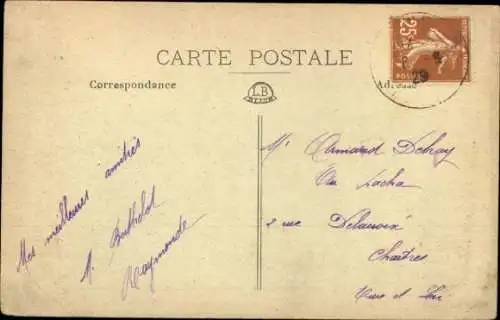 CARTE POSTALE
Correspondance
LB
Adresse
25
Mes meilleures amitiés
M. Berthelot
Raymonde
Mr Armand Delhay
2 rue Delacroix
Chartres
Eure et Loir